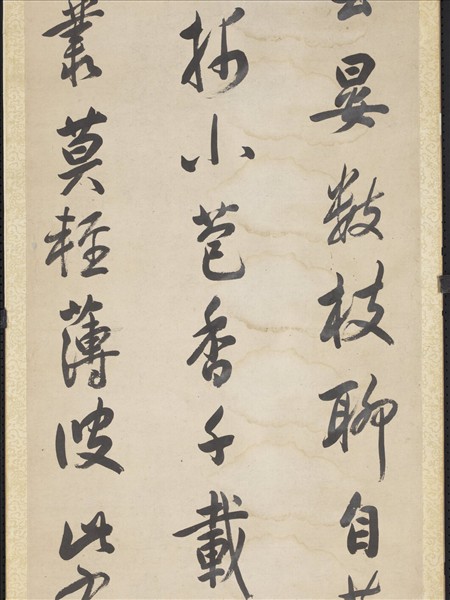 晏數枝聊自
小苞香千載
叢莫輕薄彼此